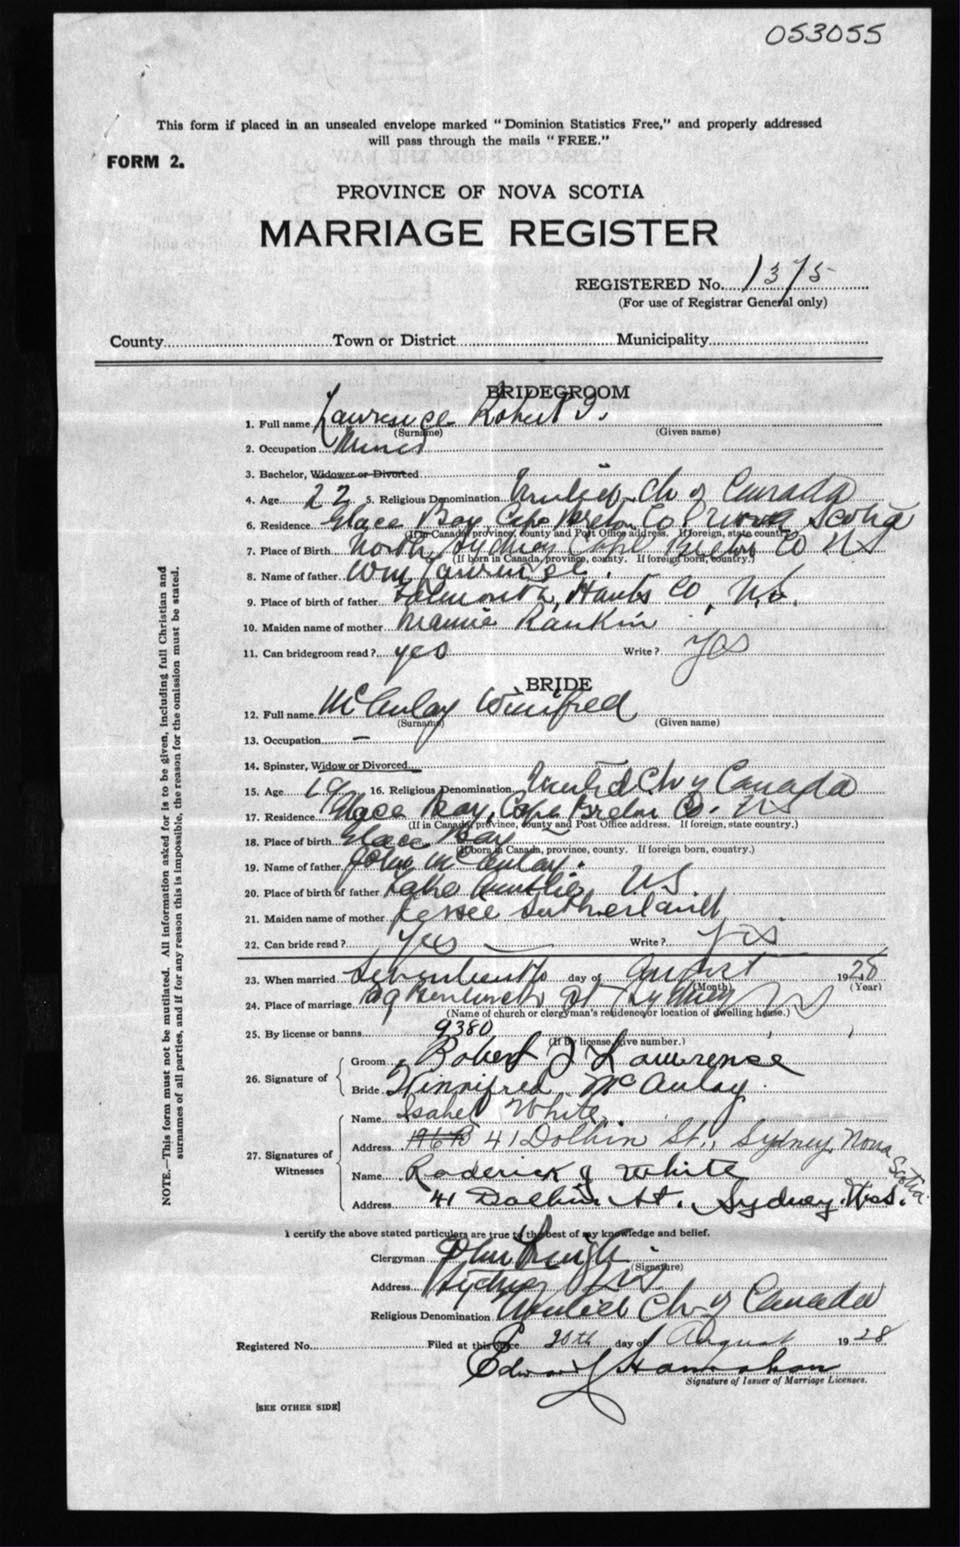 053055
This form if placed in an unsealed envelope marked "Dominion Statistics Free," and properly addressed
will pass through the mails "FREE."
FORM 2.
PROVINCE OF NOVA SCOTIA
MARRIAGE REGISTER
REGISTERED No. 1375
(For use of Registrar General only)
County Town or District Municipality
BRIDEGROOM
1. Full name Lawrence Robert J.
(Surname) (Given name)
2. Occupation Miner
3. Bachelor, Widower or Divorced
4. Age 22 5. Religious Denomination United Ch of Canada
6. Residence Glace Bay, Cape Breton Co. Nova Scotia
(If in Canada, province, county and Post Office address. If foreign, state country.)
7. Place of Birth North Sydney Cape Breton Co NS
(If born in Canada, province, county. If foreign born, country.)
8. Name of father Wm Lawrence.
9. Place of birth of father Falmouth, Hants Co, N.S.
10. Maiden name of mother Mamie Rankin
11. Can bridegroom read? yes Write? Yes
BRIDE
12. Full name McAulay Winifred
(Surname) (Given name)
13. Occupation —
14. Spinster, Widow or Divorced
15. Age 19 16. Religious Denomination United Ch of Canada
17. Residence Glace Bay, Cape Breton Co. NS
(If in Canada, province, county and Post Office address. If foreign, state country.)
18. Place of birth Glace Bay
(If born in Canada, province, county. If foreign born, country.)
19. Name of father John McAulay.
20. Place of birth of father Lake Ainslie, NS.
21. Maiden name of mother Sutherland
22. Can bride read? Yes Write? Yes
23. When married Seventeenth day of August 1928
(Month) (Year)
24. Place of marriage St Sydney NS
(Name of church or clergyman's residence or location of dwelling house.)
25. By license or banns 9380
(If by license, give number.)
26. Signature of
Groom Robert J Lawrence
Bride Winnifred McAulay.
27. Signatures of Witnesses
Name Isabel White
Address 41 Dolbin St., Sydney, Nova Scotia
Name Roderick J White
Address 41 Dolbin St. Sydney. N.S.
I certify the above stated particulars are true to the best of my knowledge and belief.
Clergyman John
(Signature)
Address Sydney NS
Religious Denomination United Ch of Canada
Registered No. Filed at this office 20th day of August 1928
Edward Hanrahan
Signature of Issuer of Marriage Licenses.
[SEE OTHER SIDE]
NOTE.—This form must not be mutilated. All information asked for is to be given, including full Christian and
surnames of all parties, and if for any reason this is impossible, the reason for the omission must be stated.